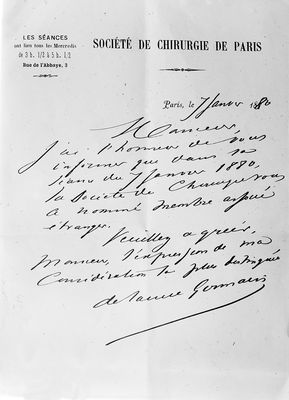 LES SÉANCES
ont lieu tous les Mercredis
de 3 h. 1/2 à 5 h. 1/2
Rue de l'Abbaye, 3
SOCIÉTÉ DE CHIRURGIE DE PARIS
Paris, le 7 Janvier 1880
Monsieur,
J'ai l'honneur de vous
informer que dans sa
séance du 7 Janvier 1880,
la Société de Chirurgie vous
a nommé membre associé
étranger.
Veuillez agréer,
Monsieur, l'expression de ma
Considération la plus distinguée
de Germain